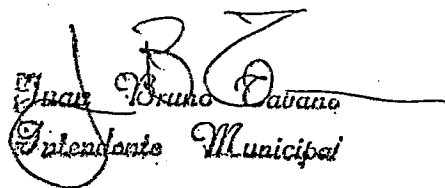 Juan Bruno Tavano
Intendente Municipal